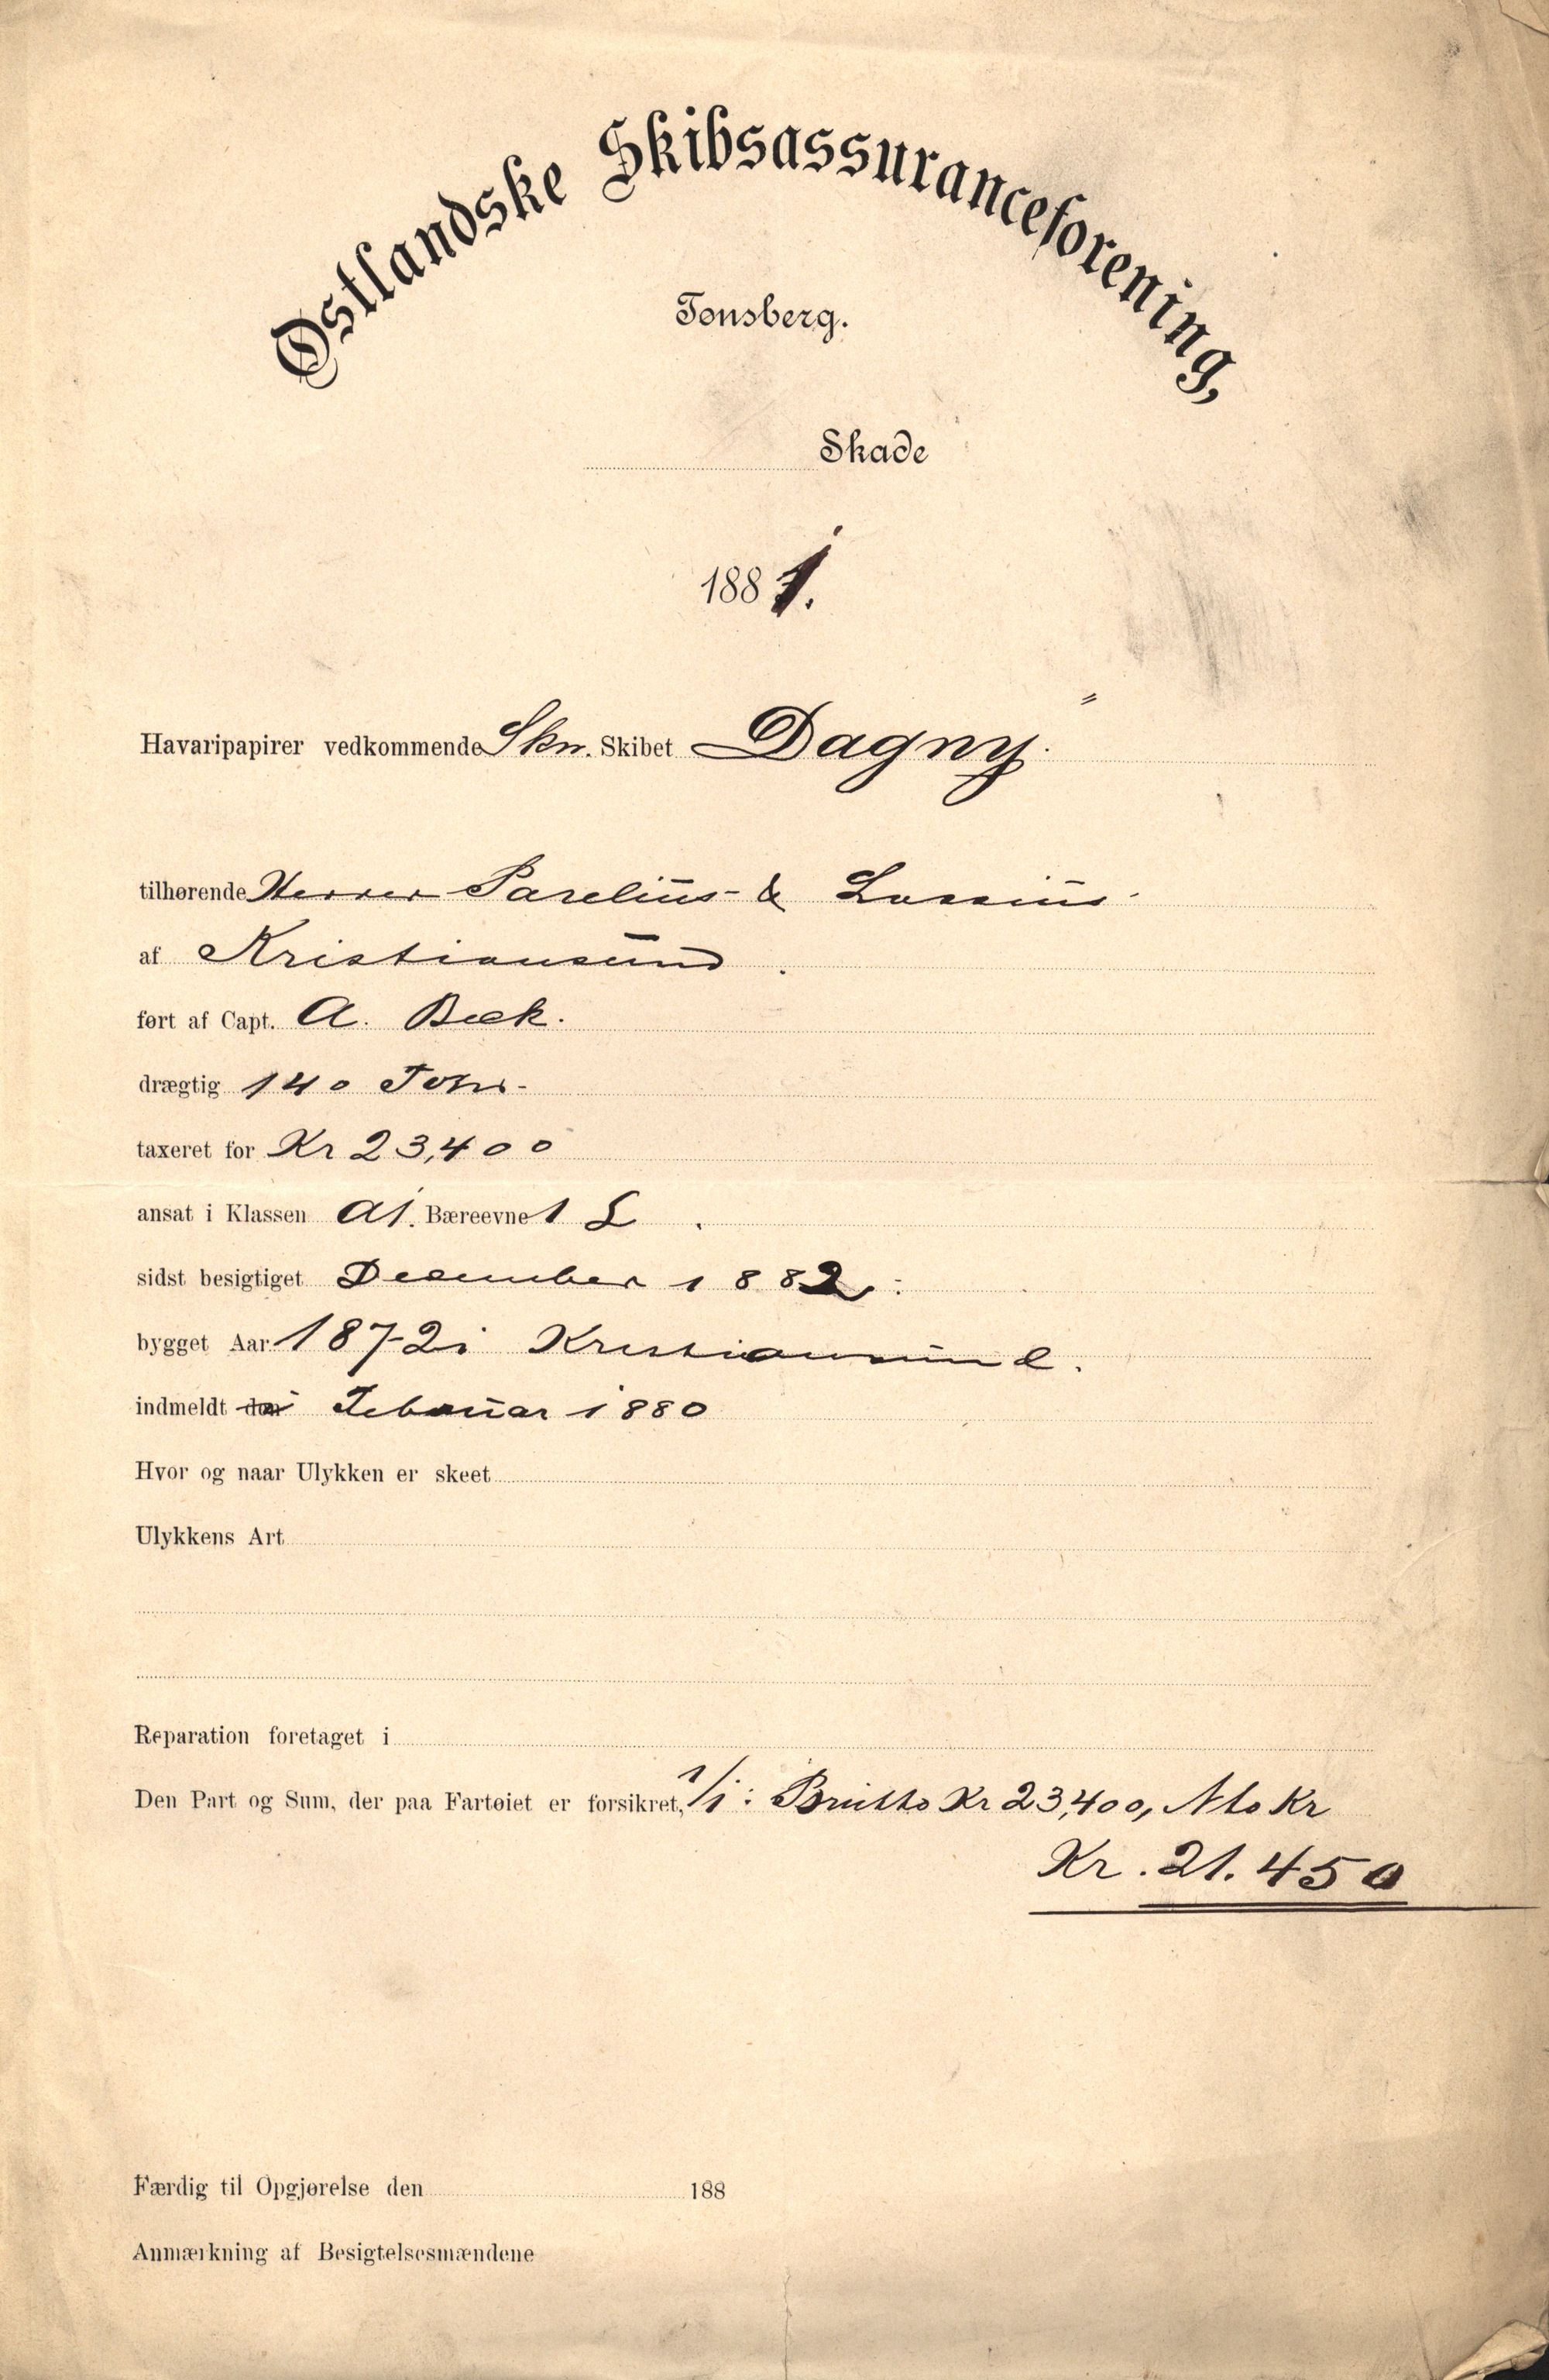 Østlandske Skibsassuranceforening,
Tønsberg.
Skade
1881.
Havaripapirer vedkommende Skn. Skibet Dagny"
tilhørende Herrer Parelius & Lossius
af Kristiansund.
ført af Capt. A. Beck.
drægtig 140 Tons
taxeret for Kr 23,400
ansat i Klassen A1. Bæreevne 1 L.
sidst besigtiget December 1882.
bygget Aar 1872 i Kristiansund.
indmeldt den Februar 1880
Hvor og naar Ulykken er skeet
Ulykkens Art
Reparation foretaget i
Den Part og Sum, der paa Fartøiet er forsikret, 1/1: Brutto Kr 23,400, Nto Kr
Kr. 21.450
Færdig til Opgjørelse den 188
Anmærkning af Besigtelsesmændene